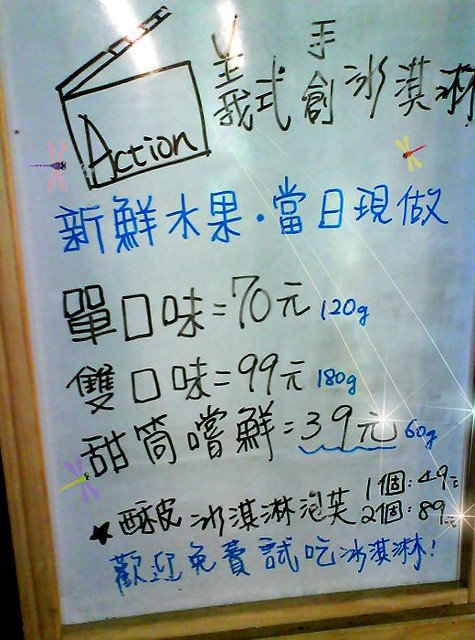 Action
義式手創冰淇淋
新鮮水果·當日現做
單口味=70元 120g
雙口味=99元 180g
甜筒嚐鮮=39元 60g
★酥皮冰淇淋泡芙 1個:49元
2個:89元
歡迎免費試吃冰淇淋!